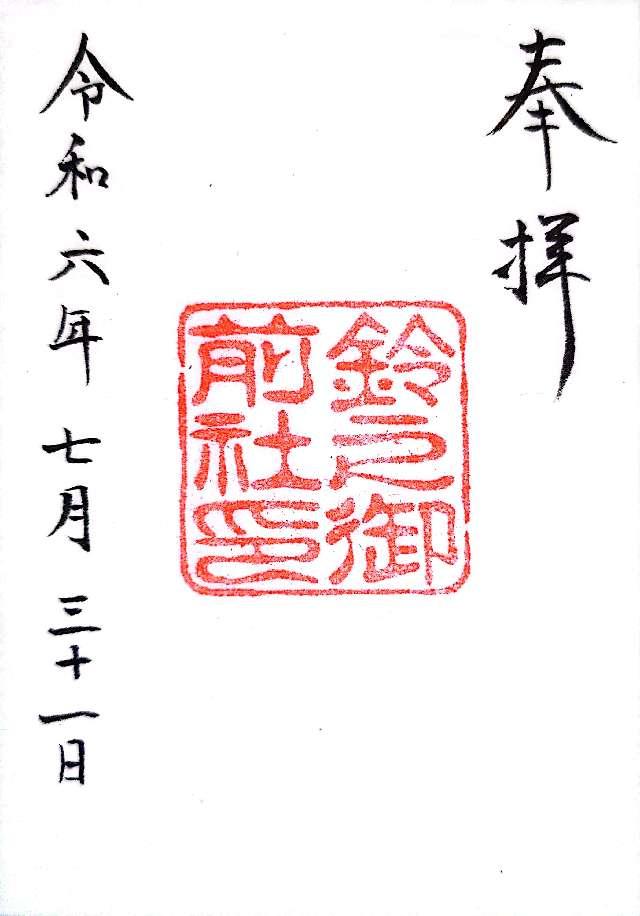 奉拝
鈴之御
前社印
令和六年七月三十一日